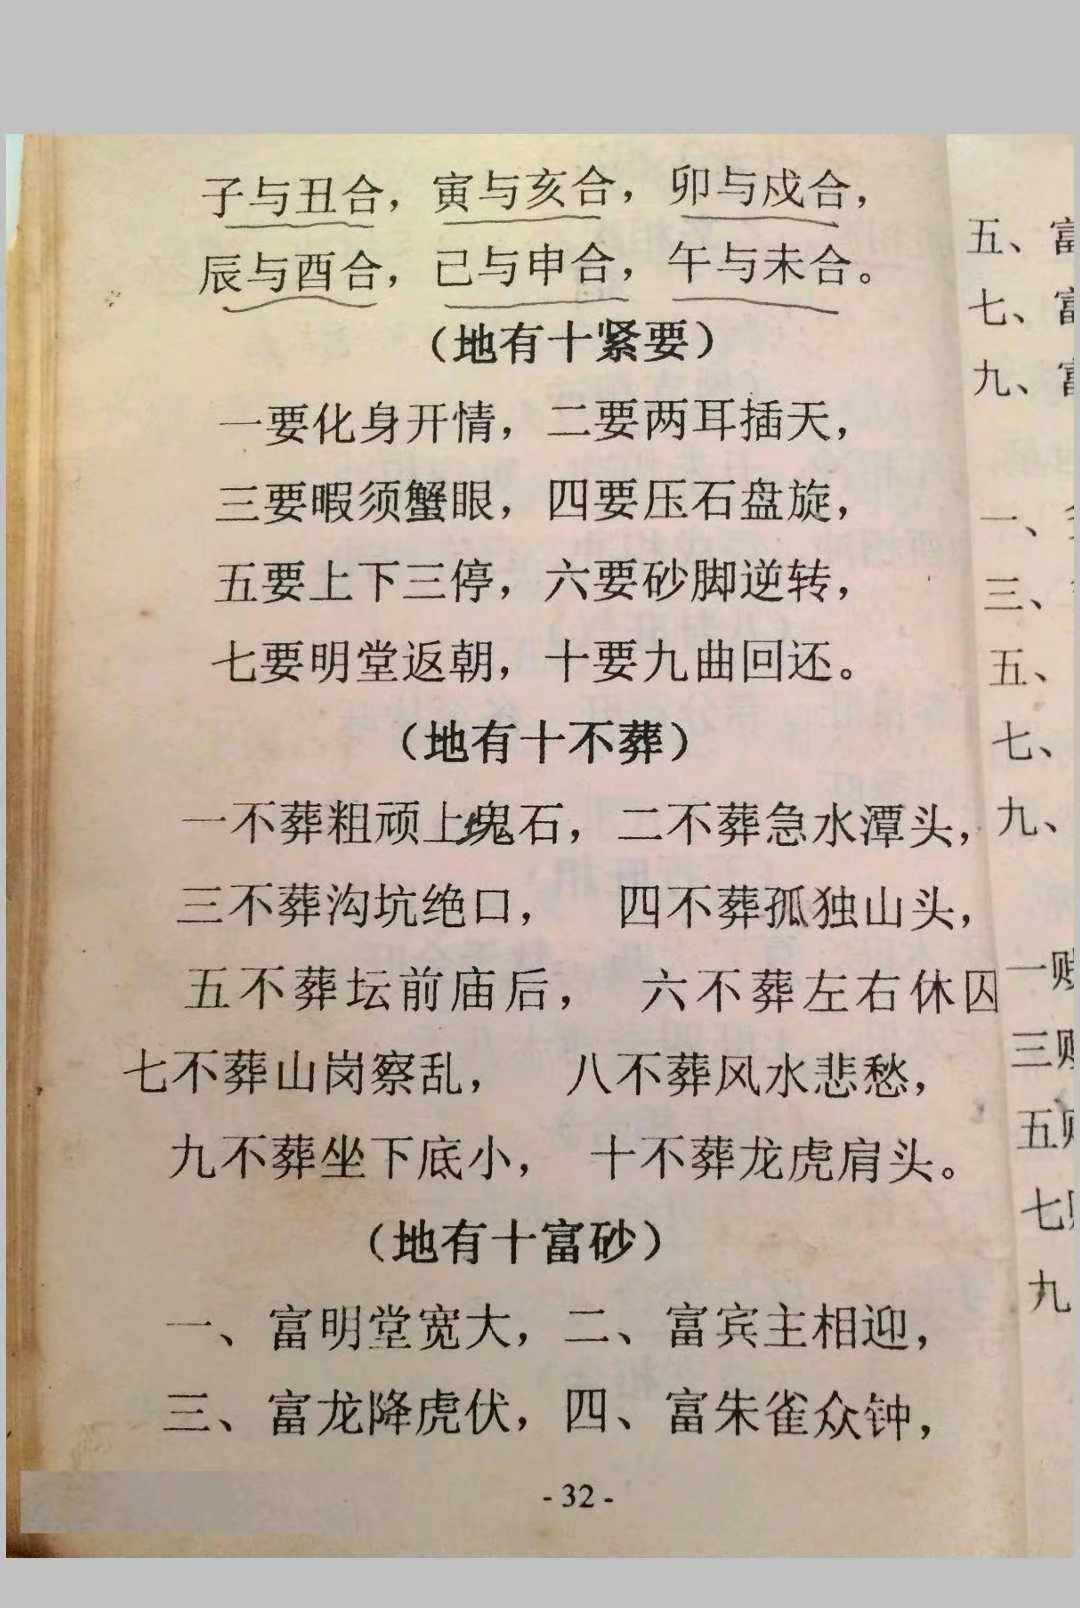 子与丑合，寅与亥合，卯与戌合，
辰与酉合，已与申合，午与未合。
（地有十紧要）
一要化身开情，二要两耳插天，
三要暇须蟹眼，四要压石盘旋，
五要上下三停，六要砂脚逆转，
七要明堂返朝，十要九曲回还。
（地有十不葬）
一不葬粗顽上块石，二不葬急水潭头，
三不葬沟坑绝口，四不葬孤独山头，
五不葬坛前庙后，六不葬左右休囚
七不葬山岗察乱，八不葬风水悲愁，
九不葬坐下底小，十不葬龙虎肩头。
（地有十富砂）
一、富明堂宽大，二、富宾主相迎，
三、富龙降虎伏，四、富朱雀众钟，
- 32 -
五、富
七、富
九、富
一、
三、
五、
七、
九、
一贱
三贱
五贱
七
九